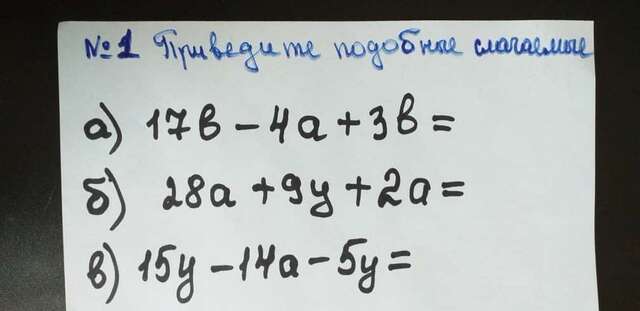 №1 Приведите подобные слагаемые
а) 17в - 4а + 3в =
б) 28а + 9у + 2а =
в) 15у - 14а - 5у =